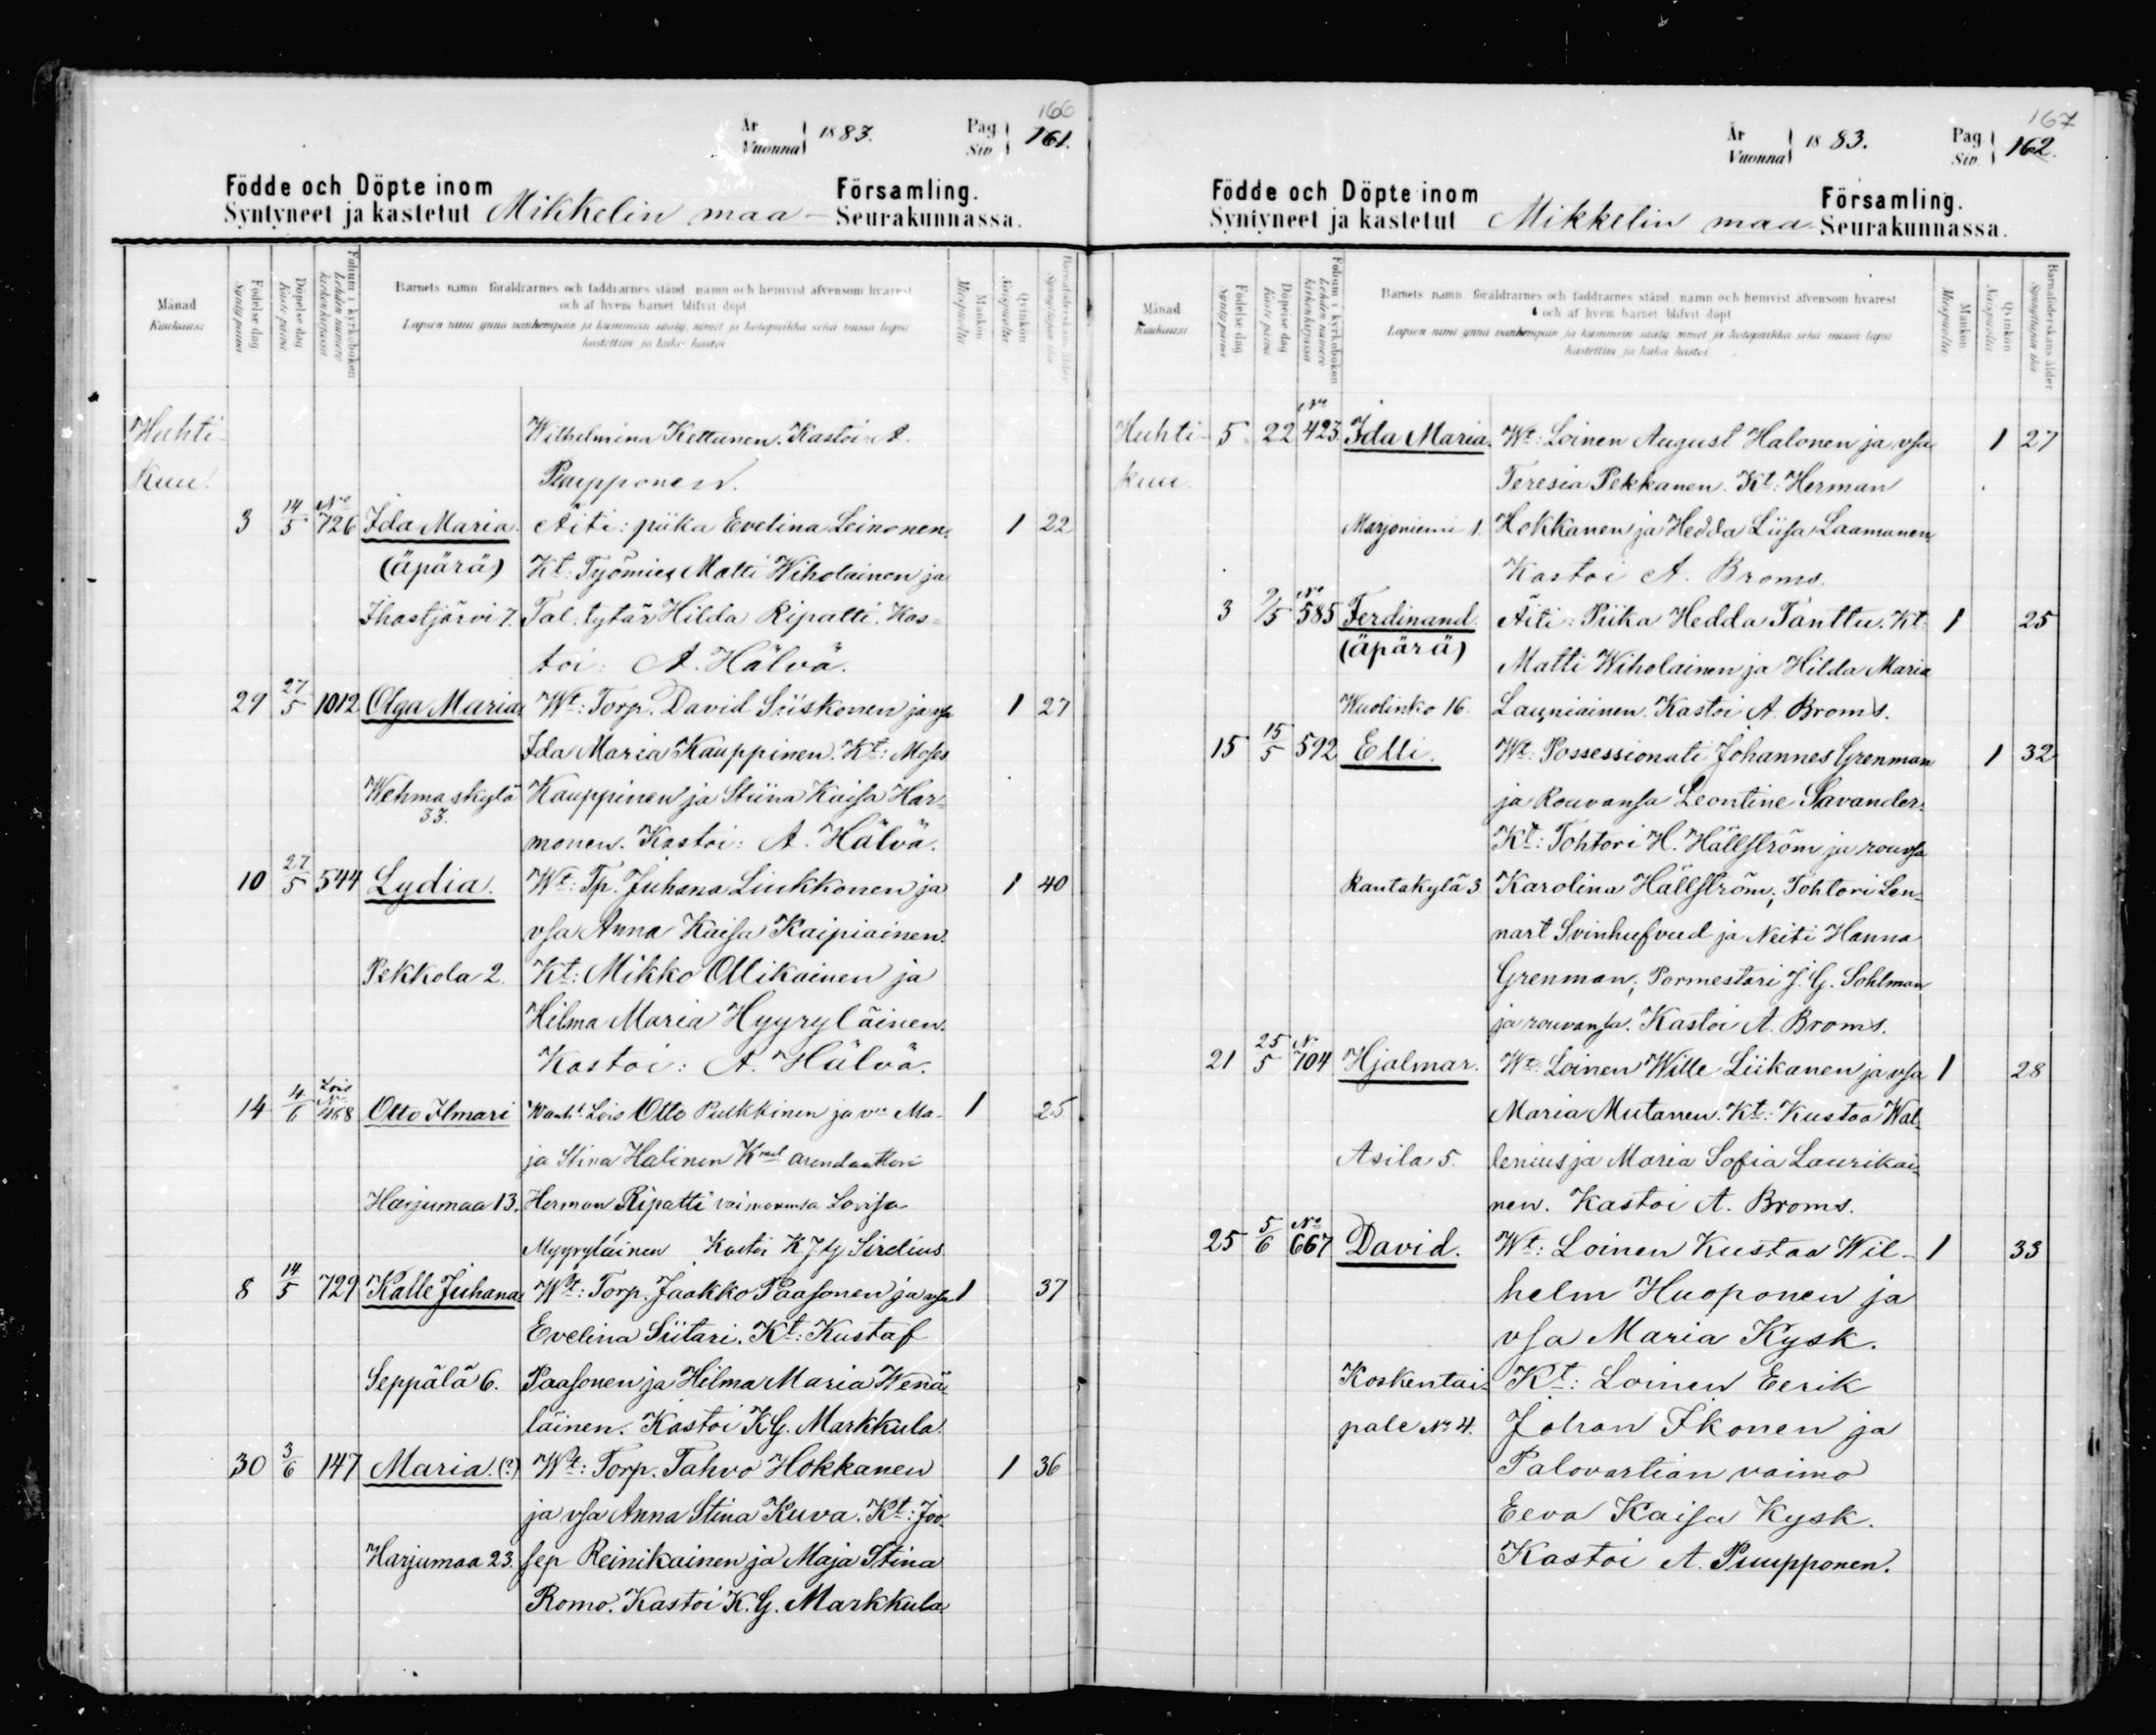 166
År
Vuonna 1883.
Pag
Siv 161.
Födde och Döpte inom Församling.
Syntyneet ja kastetut Mikkelin maa- Seurakunnassa.
Månad
Kuukausi
Födelse dag
Synty päivä
Döpelse dag
Kaste päivä
Folium i kyrkoboken
Lehden numero
kirkonkirjassa
Barnets namn, föräldrarnes och faddrarnes stånd, namn och hemvist äfvensom hvarest
och af hvem barnet blifvit döpt
Lapsen nimi ynnä vanhempain ja kummein sääty, nimet ja kotopaikka sekä missä lapsi
kastettiin ja kuka kastoi
Mankön
Miespuolia
Qvinkön
Naispuolia
Barnaföderskans ålder
Huhti- Wilhelmina Kettunen. Kastoi A.
kuu. Puupponen.
3 14/5 No 726 Ida Maria. Äiti: piika Evelina Leinonen. 1 22
(äpärä) Kt: Työmies Matti Wiholainen ja
Ihastjärvi 7. Tal. tytär Hilda Ripatti. Kas-
toi: A. Hälvä.
29 27/5 1012 Olga Maria. Wt: Torp. David Siiskonen ja vsa 1 27
Ida Maria Kauppinen. Kt: Moses
Wehmaskylä Kauppinen ja Stiina Kaisa Har-
33. monen. Kastoi: A. Hälvä.
10 27/5 544 Lydia. Wt: Tp. Juhana Liukkonen ja 1 40
vsa Anna Kaisa Kaipiainen.
Pekkola 2. Kt: Mikko Ollikainen ja
Hilma Maria Hyyryläinen.
Kastoi: A. Hälvä.
14 4/6 Lois No 468 Otto Ilmari Wanht Lois Otto Pulkkinen ja vn Ma- 1 25
ja Stina Halinen Kmt arendaattori
Harjumaa 13. Herman Ripatti vaimonsa Lovisa
Myyryläinen Kastoi K J G Sirelius
8 14/5 729 Kalle Juhana. Wt: Torp. Jaakko Paasonen ja vsa 1 37
Evelina Siitari. Kt: Kustaf
Seppälä 6. Paasonen ja Hilma Maria Wenä-
läinen. Kastoi K.G. Markkula.
30 3/6 147 Maria. (?) Wt: Torp. Tahvo Hokkanen 1 36
ja vsa Anna Stina Kuva. Kt: Joo-
Harjumaa 23. sep Reinikainen ja Maja Stina
Romo. Kastoi K. G. Markkula.
167
År
Vuonna 1883.
Pag.
Siv. 162.
Födde och Döpte inom Församling.
Syntyneet ja kastetut Mikkelin maa- Seurakunnassa.
Månad
Kuukausi
Födelse dag
Synty päivä
Döpelse dag
Kaste päivä
Folium i kyrkoboken
Lehden numero
kirkonkirjassa
Barnets namn, föräldrarnes och faddrarnes stånd, namn och hemvist äfvensom hvarest
och af hvem barnet blifvit döpt
Lapsen nimi ynnä vanhempain ja kummein sääty, nimet ja kotopaikka sekä missä lapsi
kastettiin ja kuka kastoi
Mankön
Miespuolia
Qvinkön
Naispuolia
Barnaföderskans ålder
Huhti- 5 22 No 423. Ida Maria. Wt: Loinen August Halonen ja vsa 1 27
kuu. Teresia Pekkanen. Kt: Herman
Marjoniemi 1. Hokkanen ja Hedda Liisa Laamanen
Kastoi A. Broms.
3 9/5 No 585 Ferdinand. Äiti: Piika Hedda Tanttu. Kt: 1 25
(äpärä) Matti Wiholainen ja Hilda Maria
Wuolinko 16. Launiainen. Kastoi A. Broms.
15 15/5 592 Elli. Wt: Possessionati Johannes Grenman 1 32
ja Rouvansa Leontine Savander.
Kt: Tohtori H. Hällström ja rouvsa
Rantakylä 3 Karolina Hällström, Tohtori Len-
nart Svinhufvud ja Neiti Hanna
Grenman; Pormestari J. G. Sohlman
ja rouvansa. Kastoi A. Broms.
21 25/5 No 704 Hjalmar. Wt: Loinen Wille Liikanen ja vsa 1 28
Maria Mutanen. Kt: Kustaa Wal-
Asila 5. lenius ja Maria Sofia Laurikai-
nen. Kastoi A. Broms.
25 5/6 No 667 David. Wt: Loinen Kustaa Wil- 1 33
helm Huoponen ja
vsa Maria Kysk.
Koskentai- Kt: Loinen Eerik
pale No 4. Johan Ikonen ja
Palovartian vaimo
Eeva Kaisa Kysk.
Kastoi A. Puupponen.